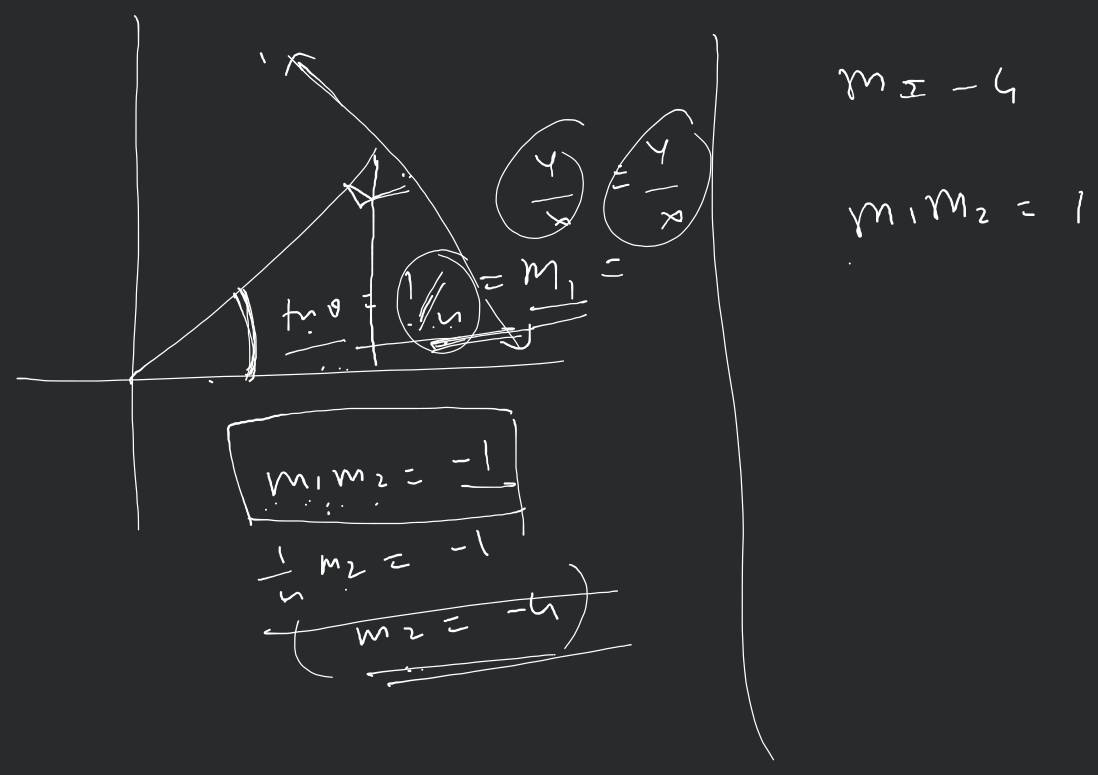 y/x = y/x
tanθ = 1/4 = m₁ =
m₁m₂ = -1
1/4 m₂ = -1
m₂ = -4
m = -4
m₁m₂ = 1